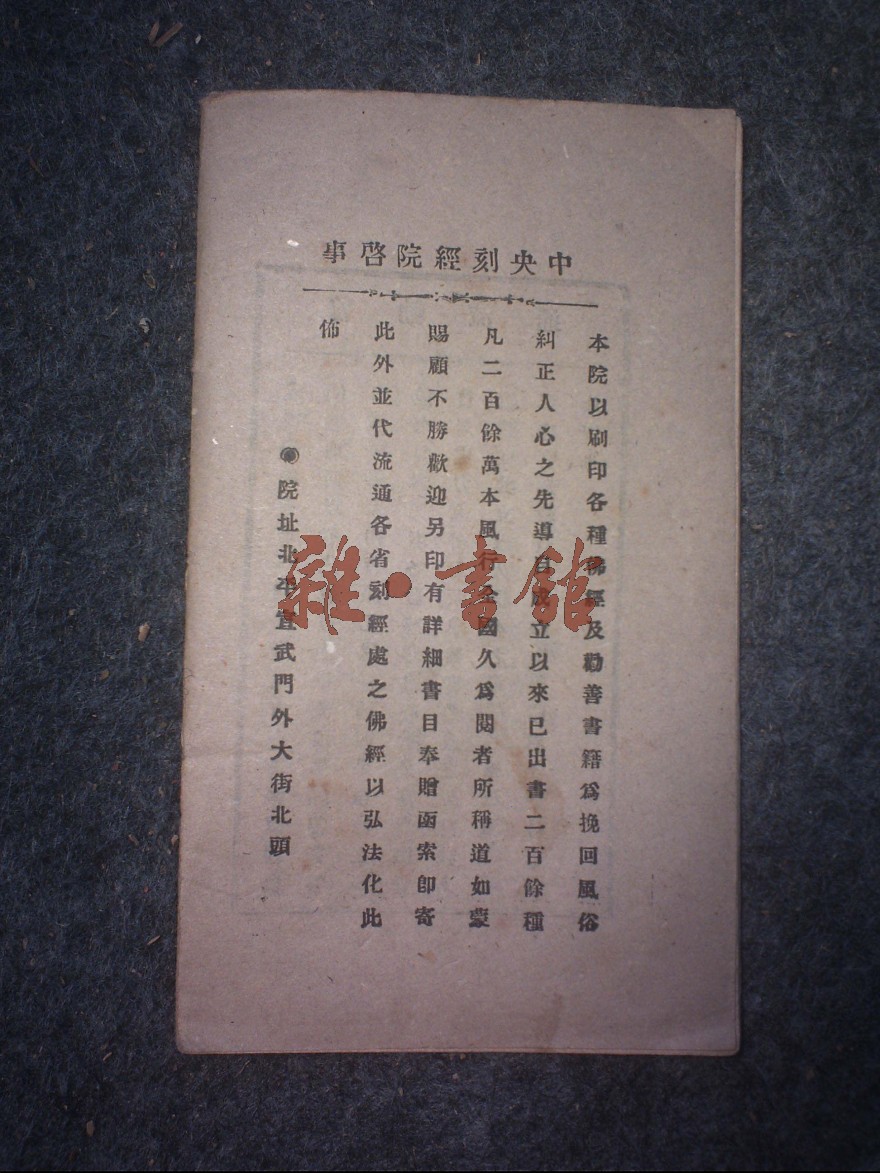 中央刻經院啓事
本院以刷印各種佛經及勸善書籍爲挽回風俗
糾正人心之先導自成立以來已出書二百餘種
凡二百餘萬本風行全國久爲閱者所稱道如蒙
賜顧不勝歡迎另印有詳細書目奉贈函索卽寄
此外並代流通各省刻經處之佛經以弘法化此
佈
院址北平宣武門外大街北頭
雜·書館